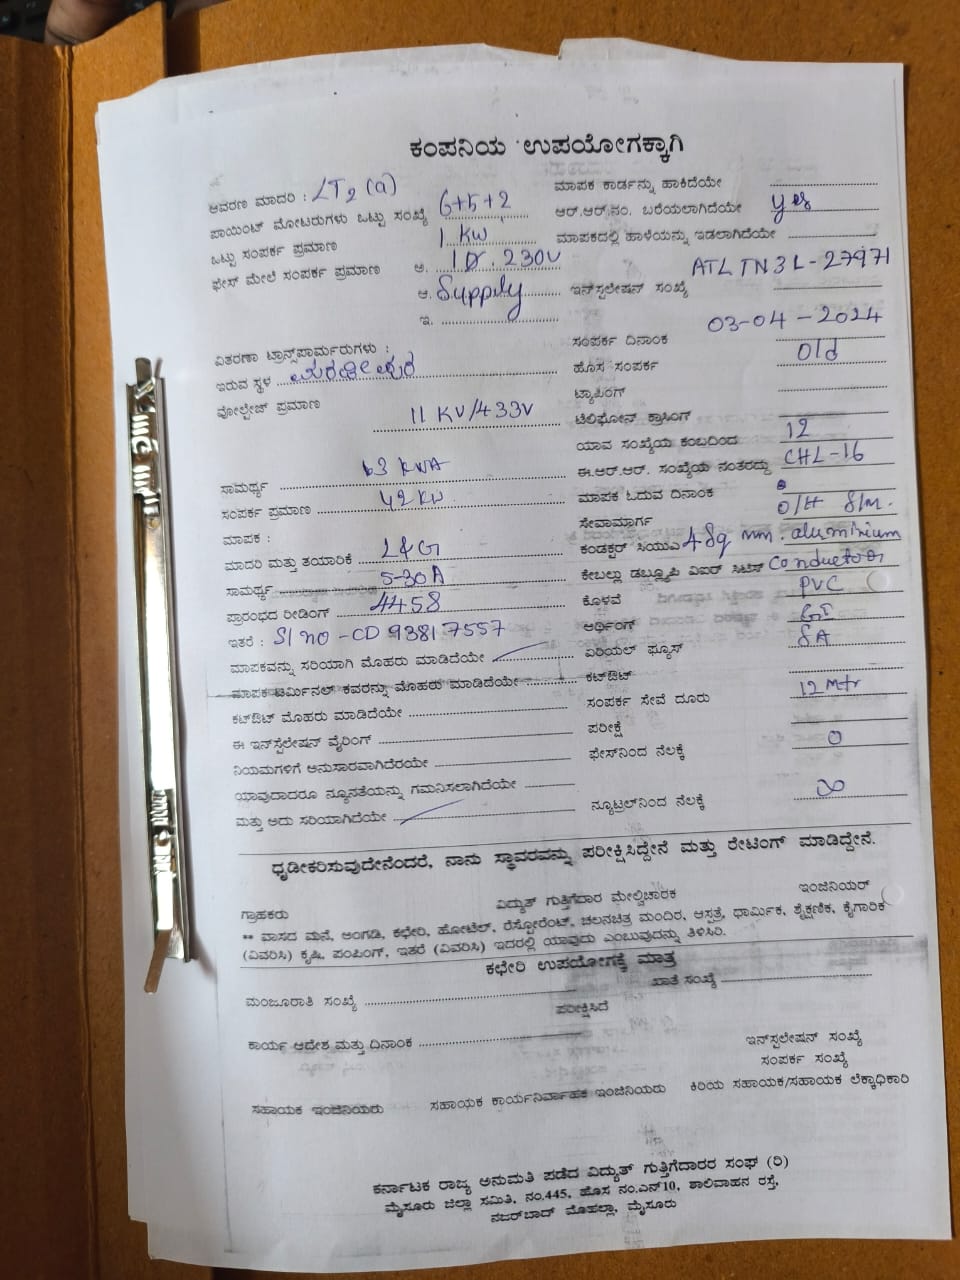 ಕಂಪನಿಯ ಉಪಯೋಗಕ್ಕಾಗಿ
ಆವರಣ ಮಾದರಿ : LT2 (a)
ಮಾಪಕ ಕಾರ್ಡನ್ನು ಹಾಕಿದೆಯೇ
ಪಾಯಿಂಟ್ ಮೋಟರುಗಳು ಒಟ್ಟು ಸಂಖ್ಯೆ 6+5+2
ಆರ್.ಆರ್.ನಂ. ಬರೆಯಲಾಗಿದೆಯೇ yes
ಒಟ್ಟು ಸಂಪರ್ಕ ಪ್ರಮಾಣ 1 KW
ಮಾಪಕದಲ್ಲಿ ಹಾಳೆಯನ್ನು ಇಡಲಾಗಿದೆಯೇ
ಫೇಸ್ ಮೇಲೆ ಸಂಪರ್ಕ ಪ್ರಮಾಣ ಅ. 1Ø. 230V
ಆ. Supply
ಇನ್‌ಸ್ಟಲೇಷನ್ ಸಂಖ್ಯೆ ATLTN3L-27971
ಇ.
ಸಂಪರ್ಕ ದಿನಾಂಕ 03-04-2024
ವಿತರಣಾ ಟ್ರಾನ್ಸ್‌ಪಾರ್ಮರುಗಳು :
ಇರುವ ಸ್ಥಳ
ಹೊಸ ಸಂಪರ್ಕ Old
ಟ್ಯಾಪಿಂಗ್
ವೋಲ್ಟೇಜ್ ಪ್ರಮಾಣ 11 KV/433V
ಟೆಲಿಫೋನ್ ಕ್ರಾಸಿಂಗ್
ಯಾವ ಸಂಖ್ಯೆಯ ಕಂಬದಿಂದ 12
ಸಾಮರ್ಥ್ಯ 63 KWA
ಈ.ಆರ್.ಆರ್. ಸಂಖ್ಯೆಯ ನಂತರದ್ದು CHL-16
ಸಂಪರ್ಕ ಪ್ರಮಾಣ 42 KW
ಮಾಪಕ ಓದುವ ದಿನಾಂಕ
ಮಾಪಕ :
ಸೇವಾಮಾರ್ಗ O/H S/M.
ಮಾದರಿ ಮತ್ತು ತಯಾರಿಕೆ L&G
ಕಂಡಕ್ಟರ್ ಸಿಯುವಿ 4 Sq mm. aluminium
ಸಾಮರ್ಥ್ಯ 5-30A
ಕೇಬಲ್ಲು ಡಬ್ಲ್ಯೂಪಿ ವಿಐರ್ ಸಿಟಿಸ್ Conductor
ಪ್ರಾರಂಭದ ರೀಡಿಂಗ್ 4458
ಕೊಳವೆ PVC
ಇತರೆ : Sl no -CD 93817557
ಆರ್ಥಿಂಗ್ GI
ಮಾಪಕವನ್ನು ಸರಿಯಾಗಿ ಮೊಹರು ಮಾಡಿದೆಯೇ
ಏರಿಯಲ್ ಫ್ಯೂಸ್ 5A
ಮಾಪಕ ಟರ್ಮಿನಲ್ ಕವರನ್ನು ಮೊಹರು ಮಾಡಿದೆಯೇ
ಕಟ್‌ಔಟ್
ಕಟ್‌ಔಟ್ ಮೊಹರು ಮಾಡಿದೆಯೇ
ಸಂಪರ್ಕ ಸೇವೆ ದೂರು 12 Mtr
ಈ ಇನ್‌ಸ್ಟಲೇಷನ್ ವೈರಿಂಗ್
ಪರೀಕ್ಷೆ
ನಿಯಮಗಳಿಗೆ ಅನುಸಾರವಾಗಿದೆರಯೇ
ಫೇಸ್‌ನಿಂದ ನೆಲಕ್ಕೆ 0
ಯಾವುದಾದರೂ ನ್ಯೂನತೆಯನ್ನು ಗಮನಿಸಲಾಗಿದೆಯೇ
ಮತ್ತು ಅದು ಸರಿಯಾಗಿದೆಯೇ
ನ್ಯೂಟ್ರಲ್‌ನಿಂದ ನೆಲಕ್ಕೆ ∞
ಧೃಡೀಕರಿಸುವುದೇನೆಂದರೆ, ನಾನು ಸ್ಥಾವರವನ್ನು ಪರೀಕ್ಷಿಸಿದ್ದೇನೆ ಮತ್ತು ರೇಟಿಂಗ್ ಮಾಡಿದ್ದೇನೆ.
ಗ್ರಾಹಕರು ವಿದ್ಯುತ್ ಗುತ್ತಿಗೆದಾರ ಮೇಲ್ವಿಚಾರಕ ಇಂಜಿನಿಯರ್
** ವಾಸದ ಮನೆ, ಅಂಗಡಿ, ಕಛೇರಿ, ಹೋಟೆಲ್, ರೆಸ್ಟೋರೆಂಟ್, ಚಲನಚಿತ್ರ ಮಂದಿರ, ಆಸ್ಪತ್ರೆ, ಧಾರ್ಮಿಕ, ಶೈಕ್ಷಣಿಕ, ಕೈಗಾರಿಕೆ
(ವಿವರಿಸಿ) ಕೃಷಿ, ಪಂಪಿಂಗ್, ಇತರೆ (ವಿವರಿಸಿ) ಇದರಲ್ಲಿ ಯಾವುದು ಎಂಬುವುದನ್ನು ತಿಳಿಸಿರಿ.
ಕಛೇರಿ ಉಪಯೋಗಕ್ಕೆ ಮಾತ್ರ
ಮಂಜೂರಾತಿ ಸಂಖ್ಯೆ
ಖಾತೆ ಸಂಖ್ಯೆ
ಪರೀಕ್ಷಿಸಿದೆ
ಕಾರ್ಯ ಆದೇಶ ಮತ್ತು ದಿನಾಂಕ
ಇನ್‌ಸ್ಟಲೇಷನ್ ಸಂಖ್ಯೆ
ಸಂಪರ್ಕ ಸಂಖ್ಯೆ
ಸಹಾಯಕ ಇಂಜಿನಿಯರು ಸಹಾಯಕ ಕಾರ್ಯನಿರ್ವಾಹಕ ಇಂಜಿನಿಯರು ಕಿರಿಯ ಸಹಾಯಕ/ಸಹಾಯಕ ಲೆಕ್ಕಾಧಿಕಾರಿ
ಕರ್ನಾಟಕ ರಾಜ್ಯ ಅನುಮತಿ ಪಡೆದ ವಿದ್ಯುತ್ ಗುತ್ತಿಗೆದಾರರ ಸಂಘ (ರಿ)
ಮೈಸೂರು ಜಿಲ್ಲಾ ಸಮಿತಿ, ನಂ.445, ಹೊಸ ನಂ.ಎನ್10, ಶಾಲಿವಾಹನ ರಸ್ತೆ,
ನಜರ್‌ಬಾದ್ ಮೊಹಲ್ಲಾ, ಮೈಸೂರು